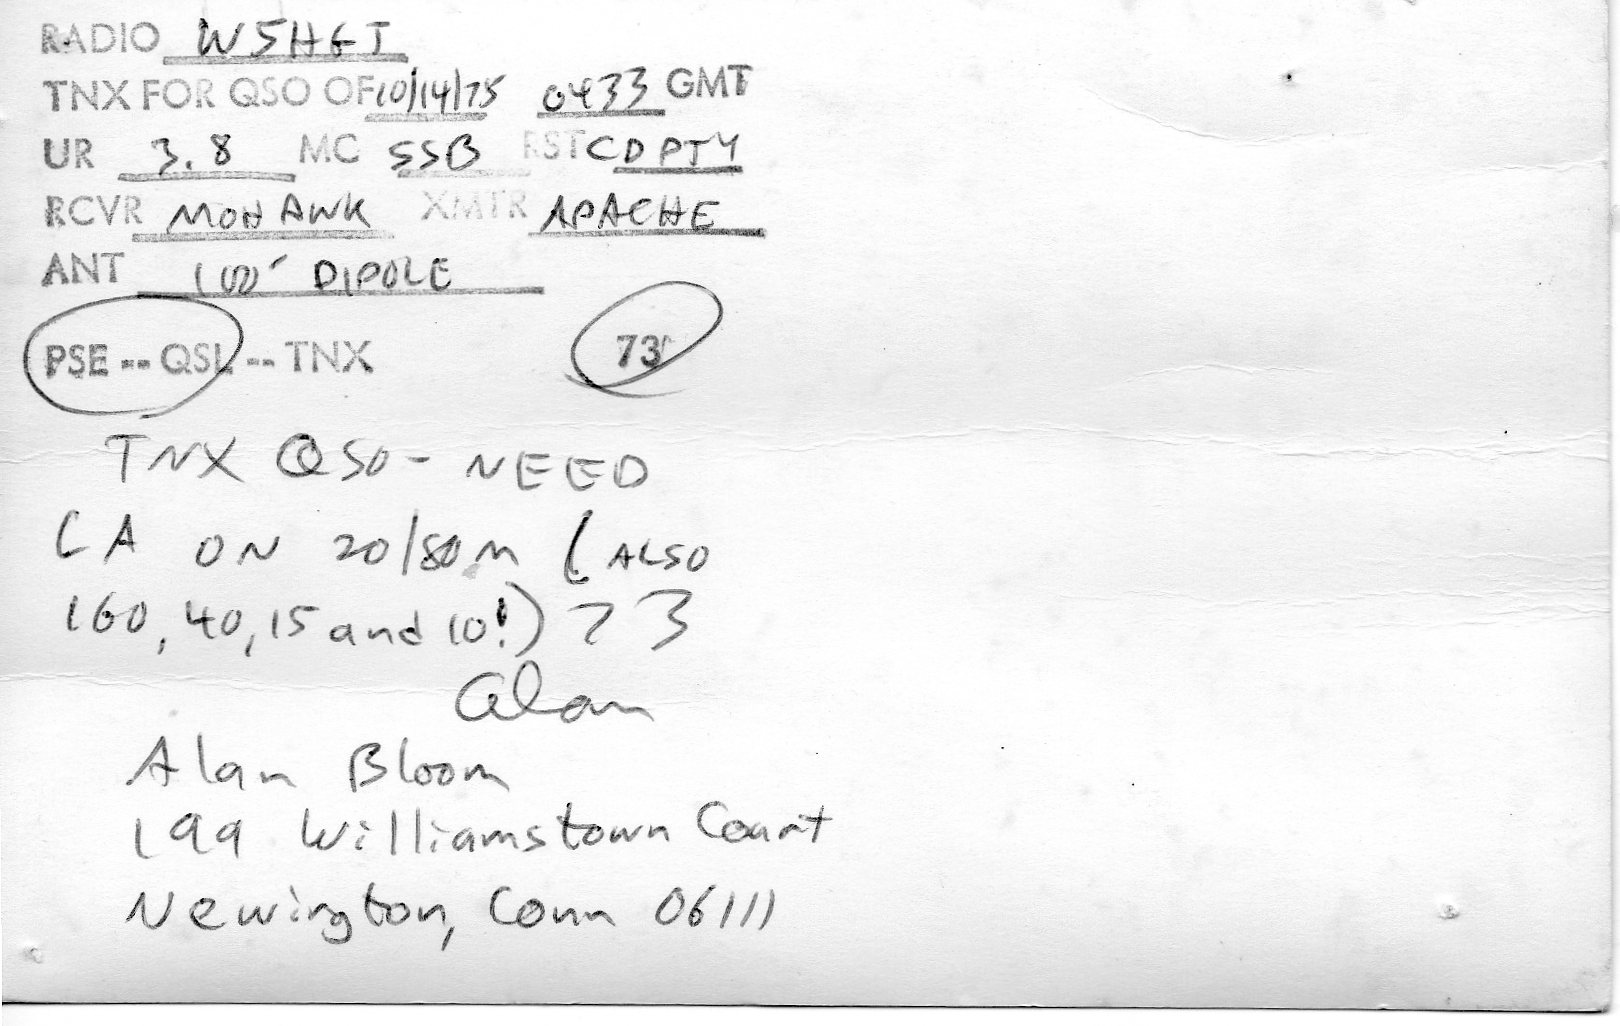 RADIO W5HGT
TNX FOR QSO OF 10/14/75 0433 GMT
UR 3.8 MC SSB RST CD PTY
RCVR MOHAWK XMTR APACHE
ANT 100' DIPOLE
PSE -- QSL -- TNX 73
TNX QSO - NEED
CA ON 20/80M (ALSO
160, 40, 15 and 10!) 73
Alan
Alan Bloom
199 Williamstown Court
Newington, Conn 06111